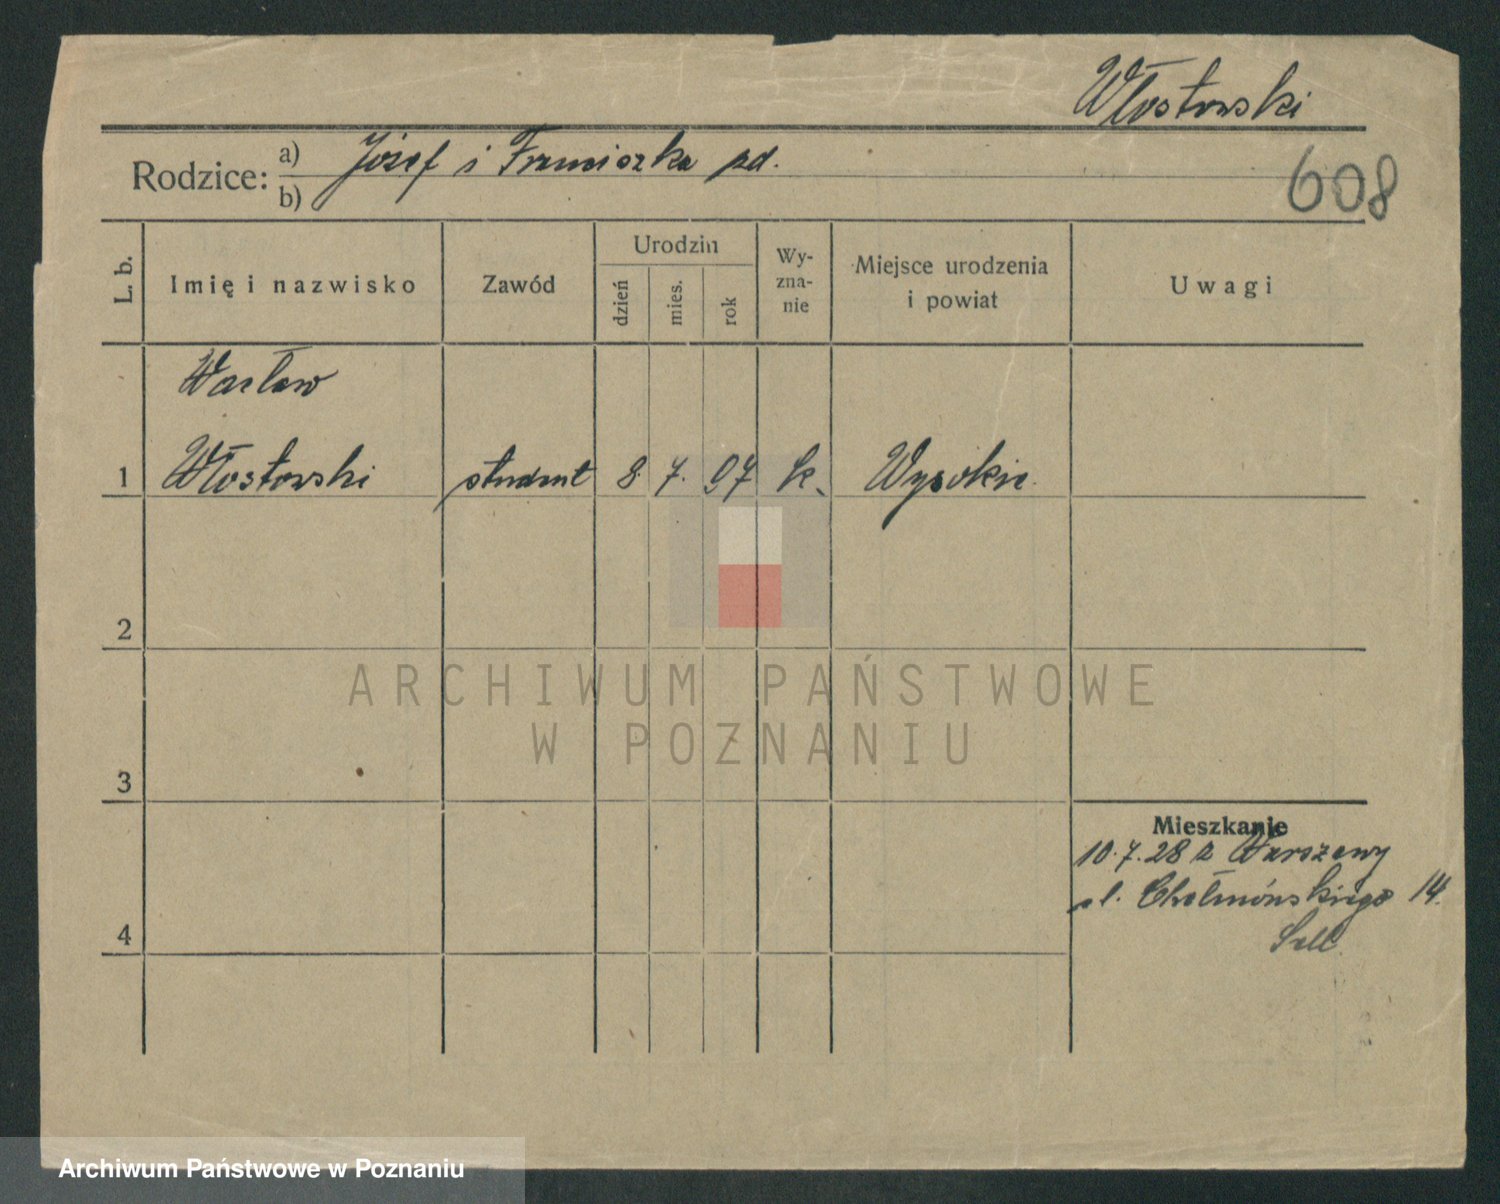 Włostowski
Rodzice: a) Józef i Franciszka zd.
b)
608
L. b.
Imię i nazwisko
Zawód
Urodzin
dzień
mies.
rok
Wy-
zna-
nie
Miejsce urodzenia
i powiat
Uwagi
Wacław
1 Włostowski student 8. 7. 97 k. Wysokie
2
ARCHIWUM PAŃSTWOWE
W POZNANIU
3
Mieszkanie
10.7.28 z Warszawy
ul. Chełmońskiego 14.
4
Archiwum Państwowe w Poznaniu